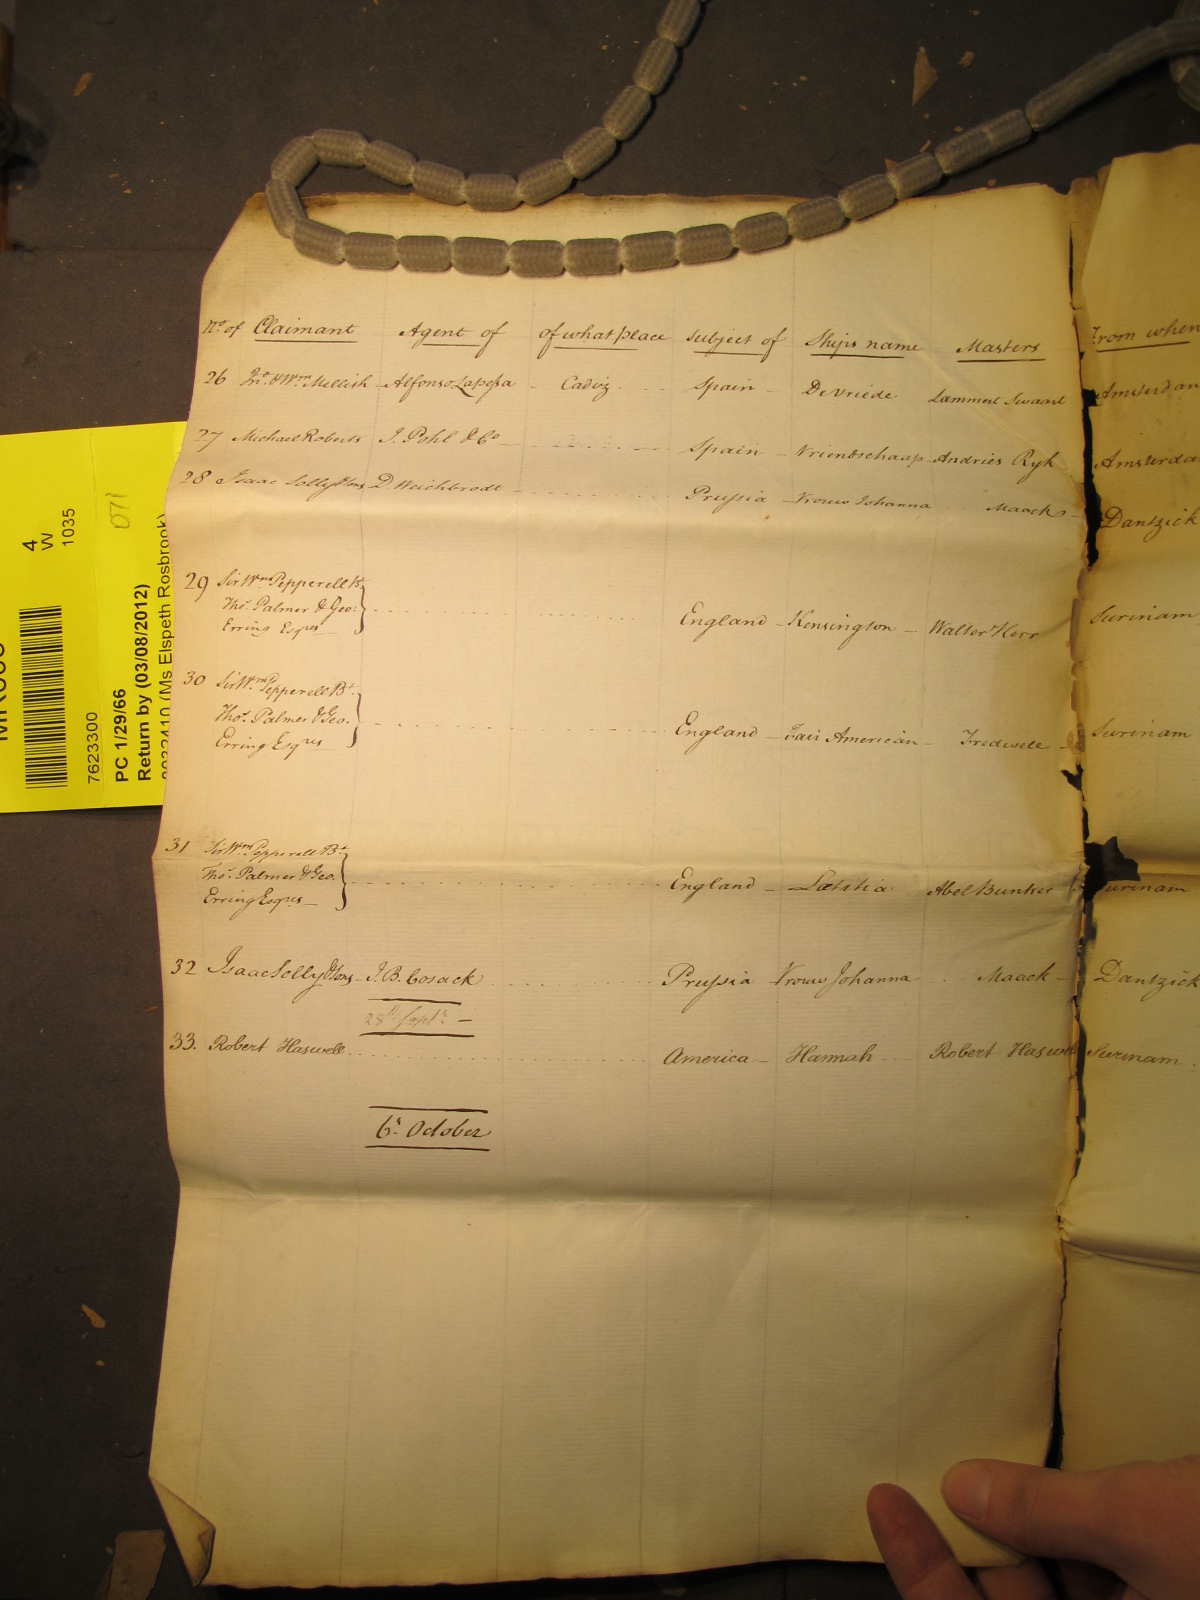 No. of Claimant Agent of of what place subject of Ships name Masters From when
26 Jno. & Wm. Mellish Alfonso Lapessa - Cadiz - Spain - De Vriede Lammert Swaart Amsterdam
27 Michael Roberts J. Pohl & Co - Spain - Vriendschaap - Andries Ryk Amsterda
28 Isaac Solly & Sons D. Weichbrodt - Prussia - Vrouw Johanna Maack - Dantzick
29 Sir Wm. Pepperell Bt.
Thos. Palmer & Geo:
Erring Esqrs England - Kensington - Walter Kerr Surinam
30 Sir Wm. Pepperell Bt.
Thos. Palmer & Geo.
Erring Esqrs England - Fair American - Tredwell - Surinam
31 Sir Wm. Pepperell Bt.
Thos. Palmer & Geo.
Erring Esqrs - England - Lætitia Abel Bunker Surinam
32 Isaac Solly & Sons - J. B. Cosack Prussia Vrouw Johanna Maack - Dantzick
28th Septr. -
33. Robert Haswell America - Hannah Robert Haswell Surinam.
6th October
4
W
1035
071
7623300
PC 1/29/66
Return by (03/08/2012)
(Ms Elspeth Rosbrook)